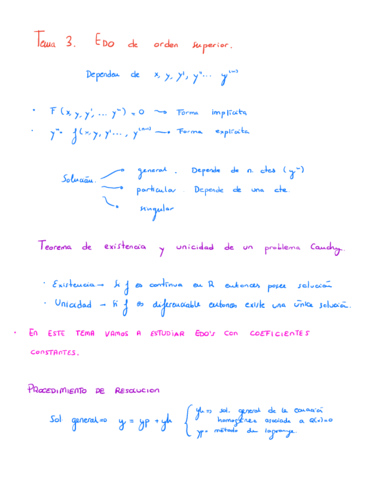 Tema 3. EDO de orden superior.
Dependen de x, y, y', y''... y⁽ⁿ⁾
· F(x, y, y', ... yⁿ) = 0 → Forma implícita
· yⁿ = f(x, y, y'..., y⁽ⁿ⁻¹⁾) → Forma explícita
general. Depende de n. ctes (yⁿ)
Solución. particular Depende de una cte.
singular
Teorema de existencia y unicidad de un problema Cauchy.
· Existencia → Si f es continua en R entonces posee solución
· Unicidad → Si f es diferenciable entonces existe una única solución.
· EN ESTE TEMA VAMOS A ESTUDIAR EDO'S CON COEFICIENTES
CONSTANTES.
PROCEDIMIENTO DE RESOLUCION
yh = sol. general de la ecuación
Sol general => y = yp + yh homogénea asociada a Q(x)=0
yp = método de lagrange.